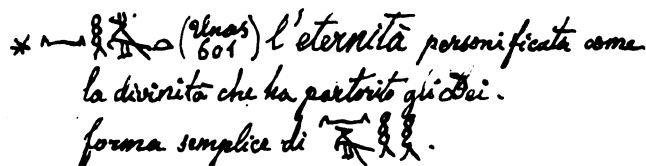 * (Unas 601) l'eternità personificata come
la divinità che ha partorito gli Dei.
forma semplice di .